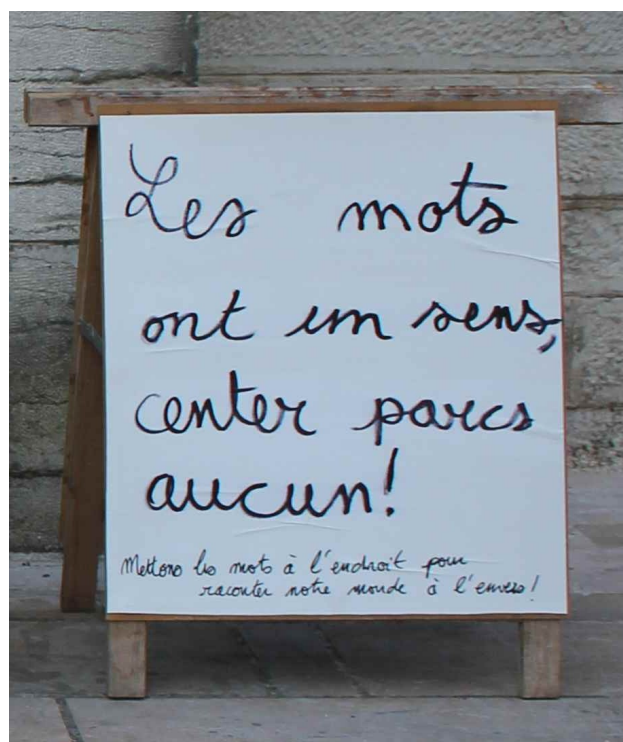 Les mots
ont un sens,
center parcs
aucun!
Mettons les mots à l'endroit pour
raconter notre monde à l'envers!